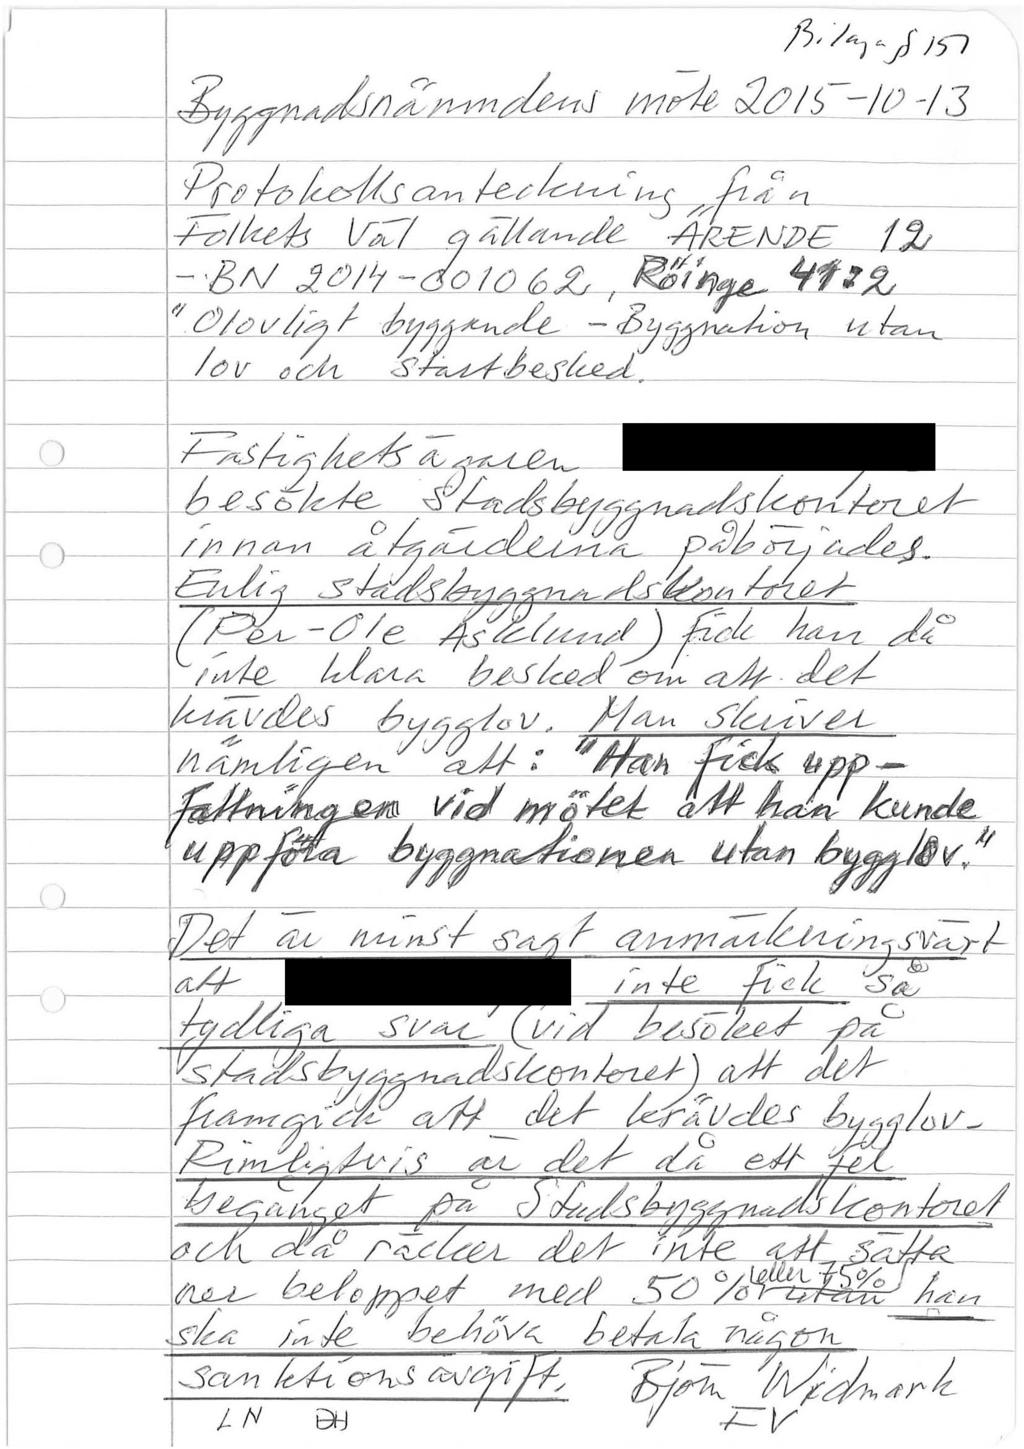 Bilaga § 157
Byggnadsnämndens möte 2015-10-13
Protokollsanteckning från
Folkets Väl gällande ÄRENDE 12
- BN 2014-001062, Röinge 4:72
"Olovligt byggande - Byggnation utan
lov och startbesked.
Fastighetsägaren
besökte Stadsbyggnadskontoret
innan åtgärderna påbörjades.
Enlig stadsbyggnadskontoret
(Per-Ole Asklund) fick han då
inte klara besked om att det
krävdes bygglov. Man skriver
nämligen att: "Han fick upp-
fattningen vid mötet att han kunde
uppföra byggnationen utan bygglov."
Det är minst sagt anmärkningsvärt
att inte fick så
tydliga svar (vid besöket på
stadsbyggnadskontoret) att det
framgick att det krävdes bygglov.
Rimligtvis är det då ett fel
begånget på Stadsbyggnadskontoret
och då räcker det inte att sätta
ner beloppet med 50% (eller 75%) utan han
ska inte behöva betala någon
sanktionsavgift. Björn Widmark
LN FV